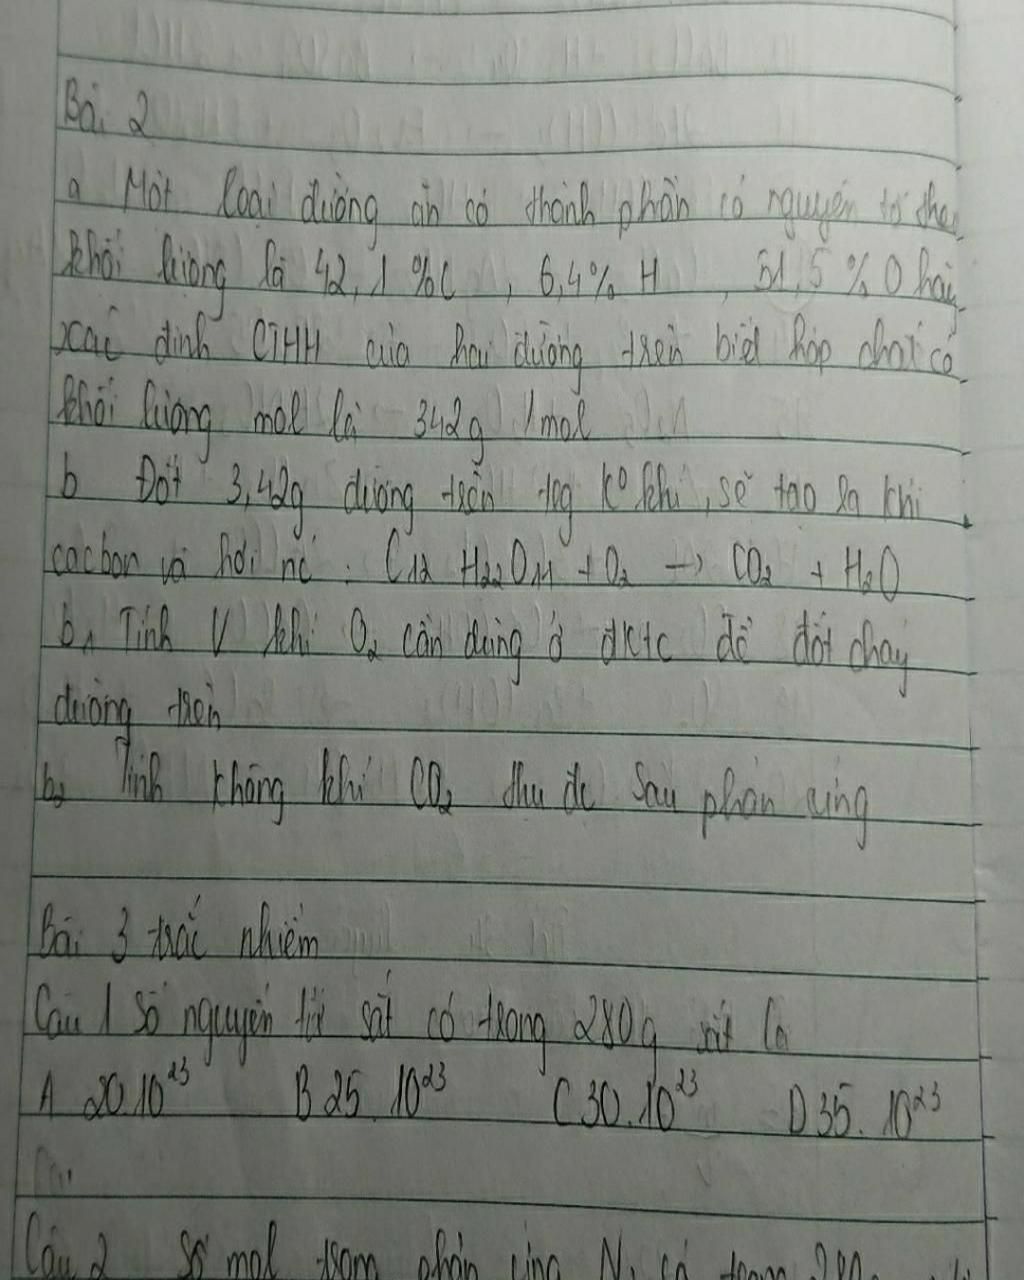 Bài 2
a Một loại đường ăn có thành phần có nguyên tố theo
khối lượng là 42,1 %C , 6,4% H , 51,5 % O hãy
xác định CTHH của hai đường trên biết hợp chất có
khối lượng mol là 342g /mol
b Đốt 3,42g đường trên tog k° khí, sẽ tạo ra khí
cacbon và hơi nc : C12 H22O11 + O2 → CO2 + H2O
b1 Tính V khí O2 cần dùng ở đktc để đốt cháy
đường trên
b2 Tính không khí CO2 thu đc sau phản ứng
Bài 3 trắc nhiệm
Câu 1 Số nguyên tử sắt có trong 280g sắt là
A 20.10²³ B 25 . 10²³ C 30.10²³ D 35. 10²³
Câu 2 Số mol trong phản ứng N2 có trong 280